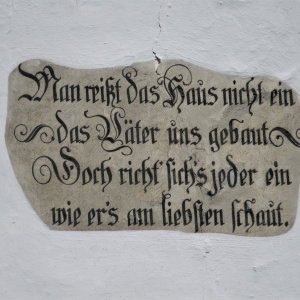 Man reißt das Haus nicht ein
das Väter uns gebaut
Doch richt' sich's jeder ein
wie er's am liebsten schaut.